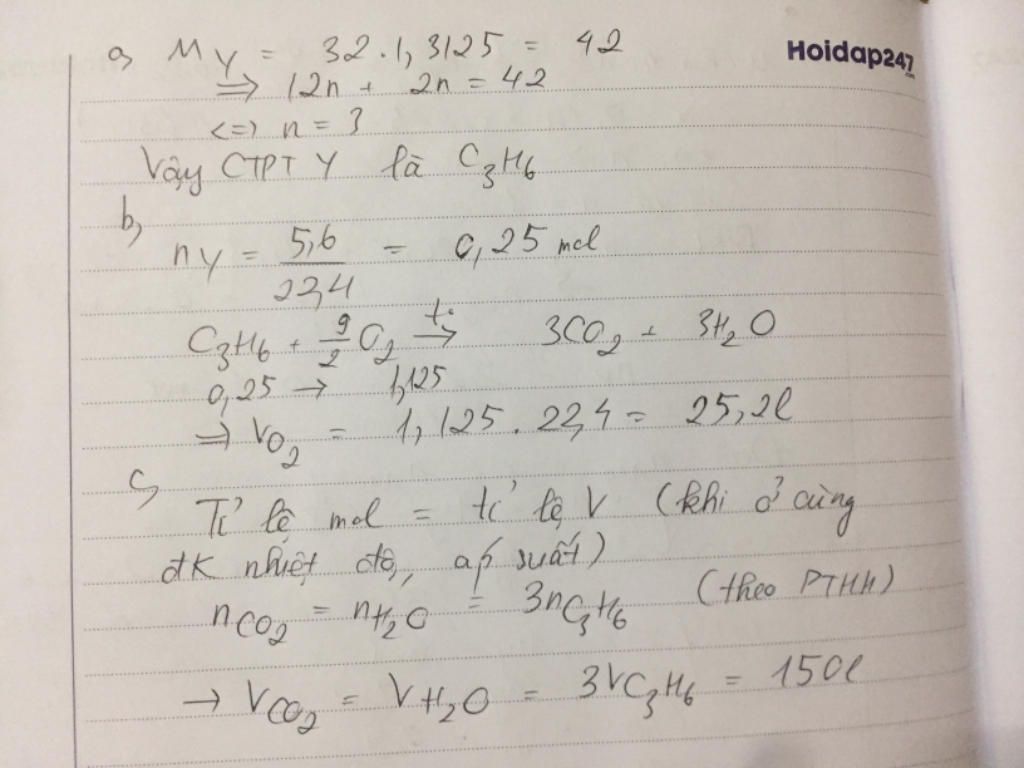 a, M Y = 32.1,3125 = 42
Hoidap247.com
=> 12n + 2n = 42
<=> n = 3
Vậy CTPT Y là C3H6
b,
nY = 5,6/22,4 = 0,25 mol
C3H6 + 9/2 O2 t°→ 3CO2 + 3H2O
0,25 → 1,125
=> VO2 = 1,125.22,4 = 25,2l
c,
Tỉ lệ mol = tỉ lệ V (khi ở cùng
đk nhiệt độ, áp suất)
nCO2 = nH2O = 3nC3H6 (theo PTHH)
→ VCO2 = VH2O = 3VC3H6 = 150l